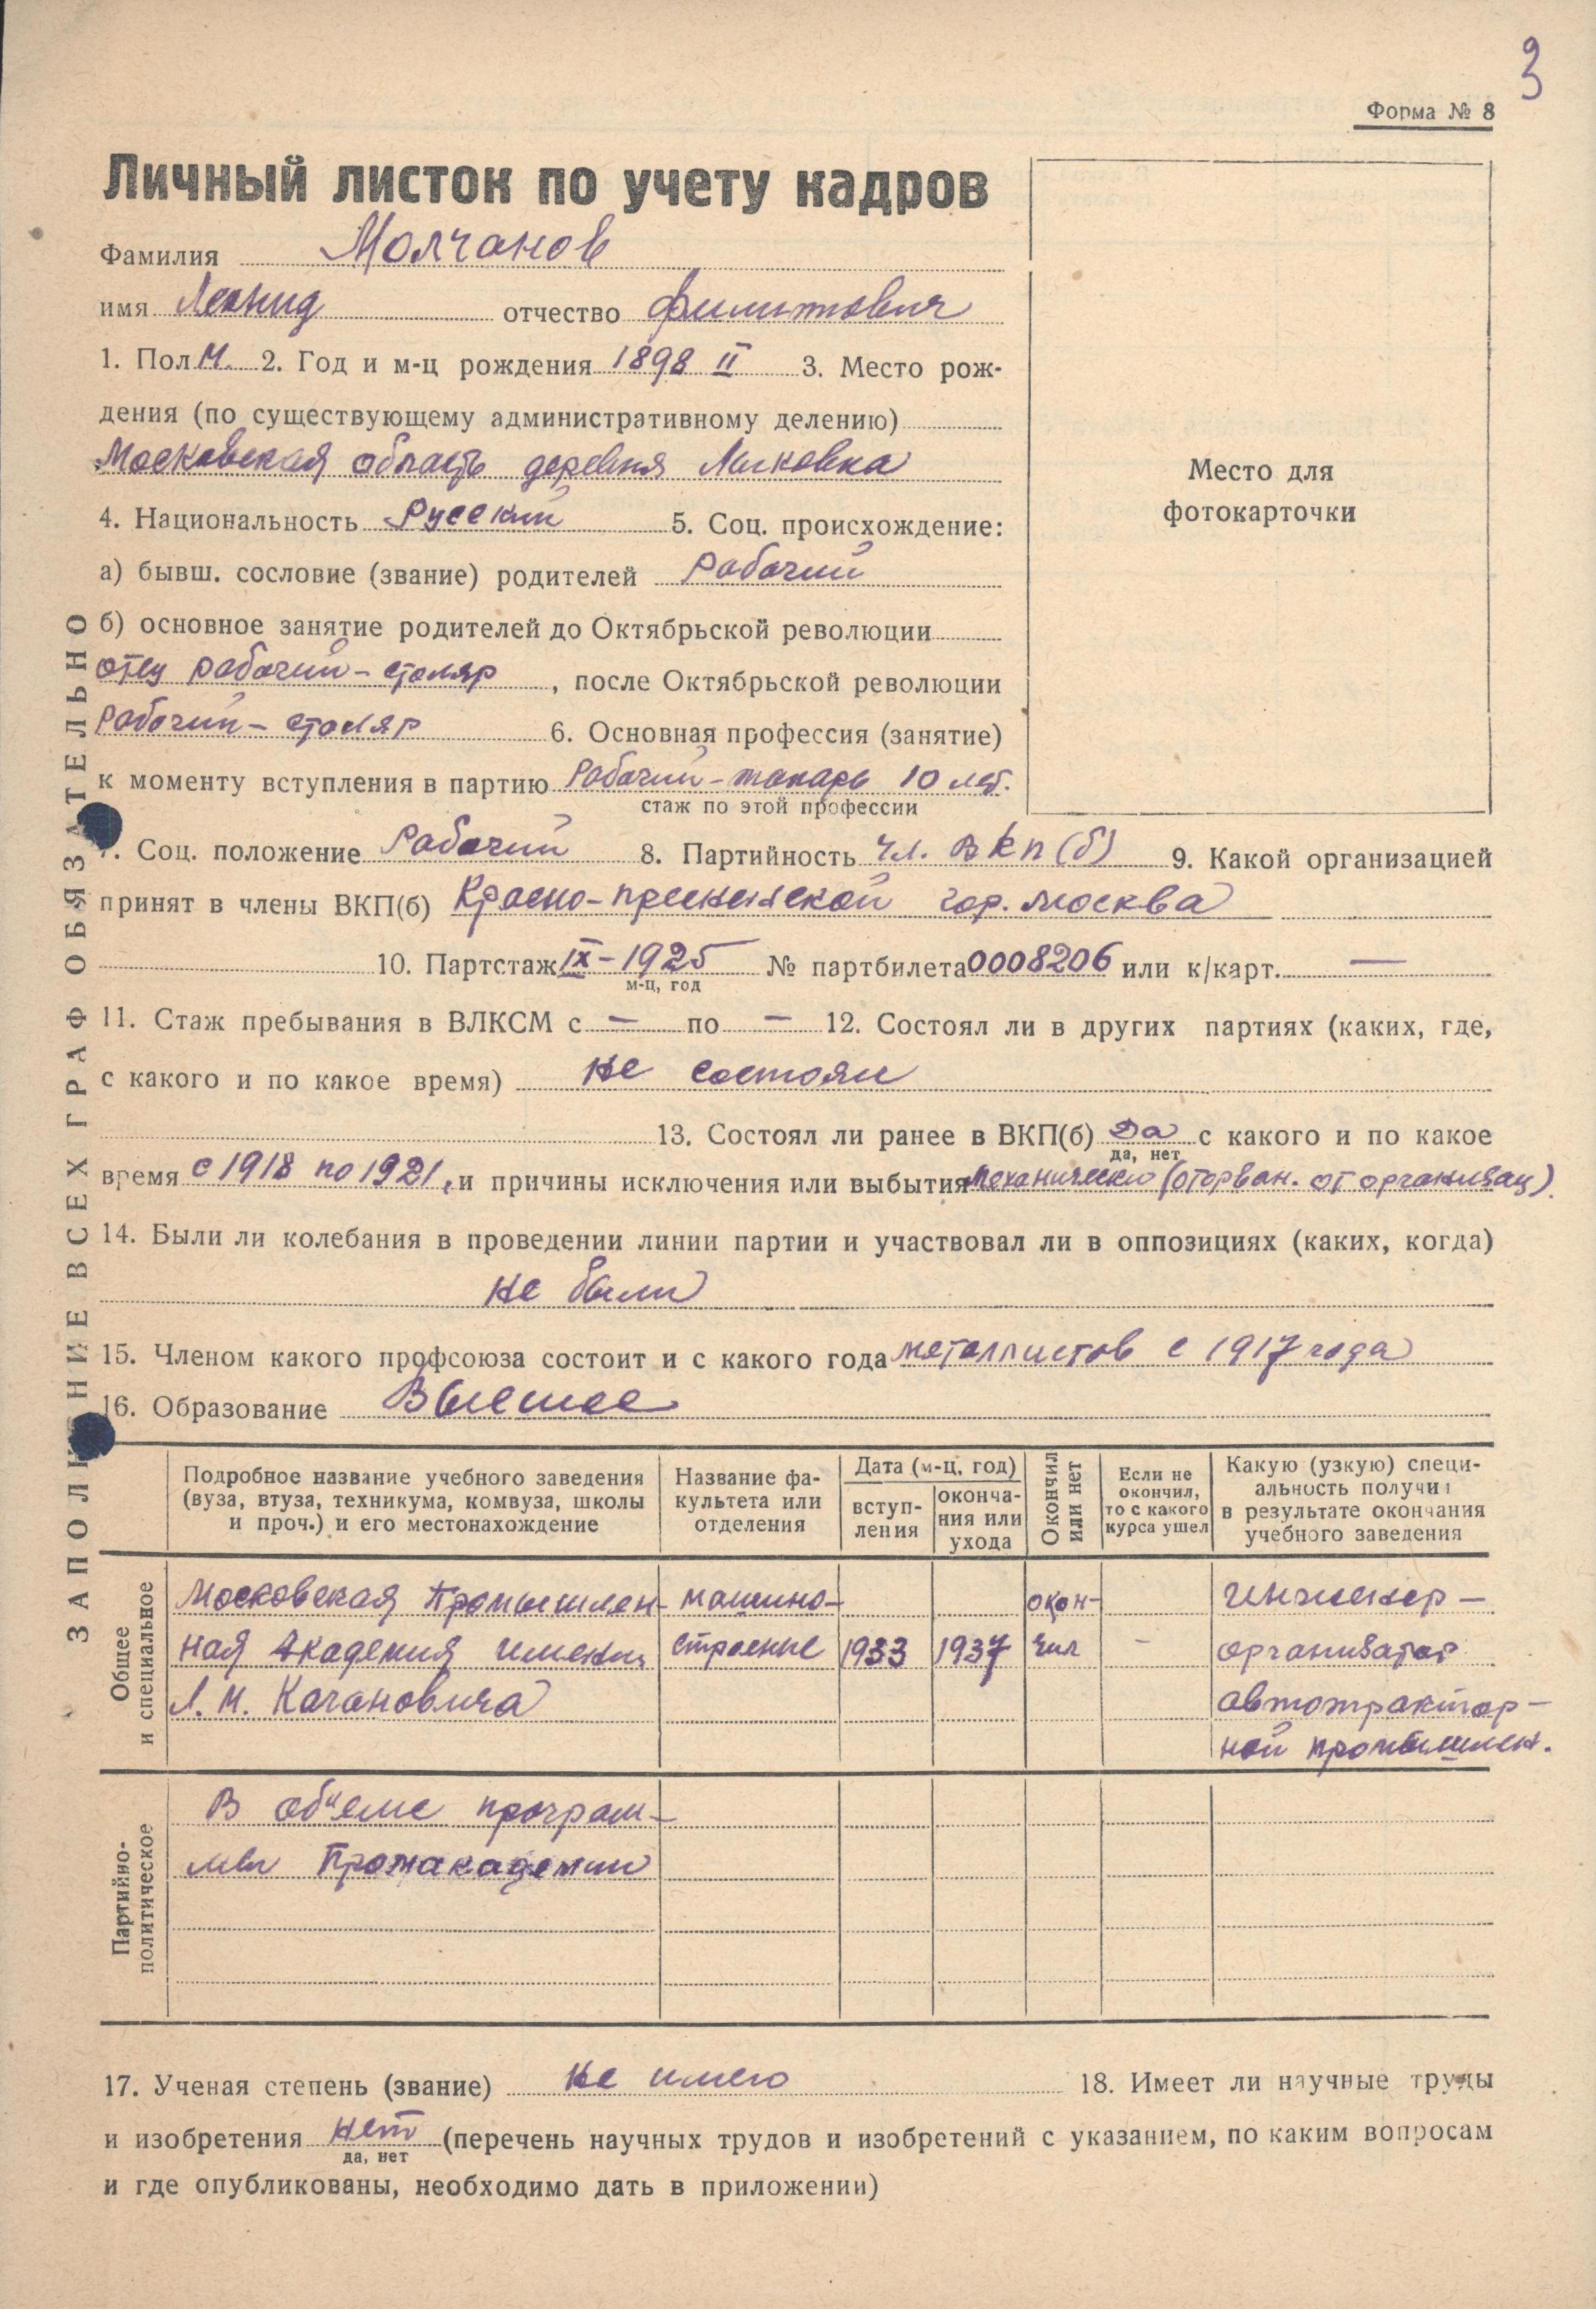 3
Форма № 8
Личный листок по учету кадров
Фамилия Молчанов
имя Леонид отчество Филиппович
1. Пол М. 2. Год и м-ц рождения 1898 II 3. Место рож-
дения (по существующему административному делению)
Московская область деревня
4. Национальность Русский 5. Соц. происхождение:
а) бывш. сословие (звание) родителей Рабочий
б) основное занятие родителей до Октябрьской революции
отец рабочий - столяр, после Октябрьской революции
Рабочий - столяр 6. Основная профессия (занятие)
к моменту вступления в партию Рабочий - токарь 10 лет.
стаж по этой профессии
7. Соц. положение Рабочий 8. Партийность чл. ВКП(б) 9. Какой организацией
принят в члены ВКП(б) Красно-пресненской гор. Москва
10. Партстаж IX - 1925 № партбилета 0008206 или к/карт. —
м-ц, год
11. Стаж пребывания в ВЛКСМ с — по — 12. Состоял ли в других партиях (каких, где,
с какого и по какое время) не состоял
13. Состоял ли ранее в ВКП(б) Да с какого и по какое
да, нет
время с 1918 по 1921, и причины исключения или выбытия механически (оторван. от организац).
14. Были ли колебания в проведении линии партии и участвовал ли в оппозициях (каких, когда)
не были
15. Членом какого профсоюза состоит и с какого года металлистов с 1917 года
16. Образование Высшее
Подробное название учебного заведения (вуза, втуза, техникума, комвуза, школы и проч.) и его местонахождение
Название фа- культета или отделения
Дата (м-ц, год)
вступ- ления
оконча- ния или ухода
Окончил или нет
Если не окончил, то с какого курса ушел
Какую (узкую) специ- альность получил в результате окончания учебного заведения
Общее и специальное
Московская Промышлен- машино- окон- Инженер -
ная Академия имени строение 1933 1937 чил - организатор
Л. М. Кагановича автотрактор-
ной промышлен.
Партийно- политическое
В об"еме програм-
мы Промакадемии
17. Ученая степень (звание) не имею 18. Имеет ли научные труды
и изобретения нет (перечень научных трудов и изобретений с указанием, по каким вопросам
да, нет
и где опубликованы, необходимо дать в приложении)
ЗАПОЛНЕНИЕ ВСЕХ ГРАФ ОБЯЗАТЕЛЬНО
Место для
фотокарточки